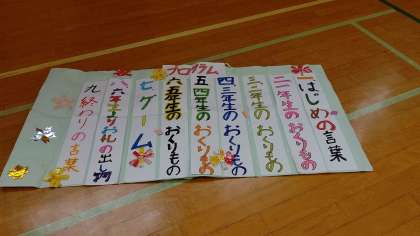 プログラム
一はじめの言葉
二一年生のおくりもの
三二年生のおくりもの
四三年生のおくりもの
五四年生のおくりもの
六五年生のおくりもの
七ゲーム
八六年生よりお礼の出し物
九終わりの言葉